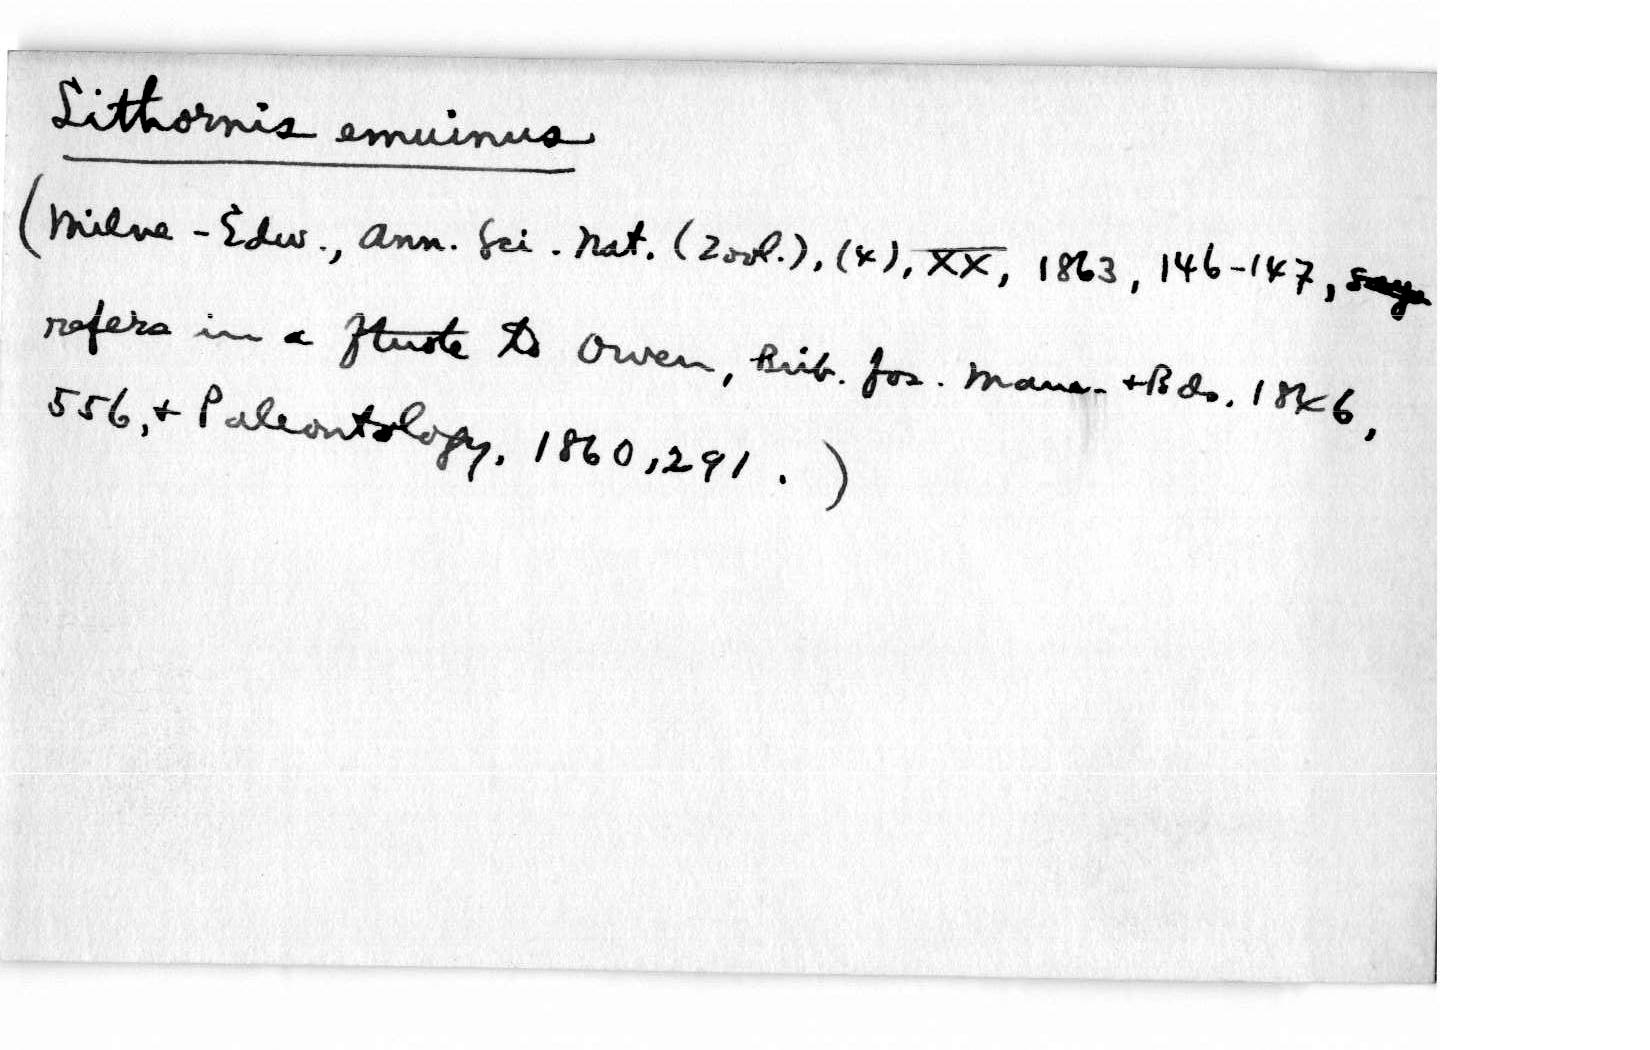 Lithornis emuinus
(Milne-Edw., Ann. Sci. Nat. (Zool.), (4), XX, 1863, 146-147, says
refers in a ftnote to Owen, Brit. fos. Mam. + Bds. 1846,
556, + Paleontology, 1860, 291.)